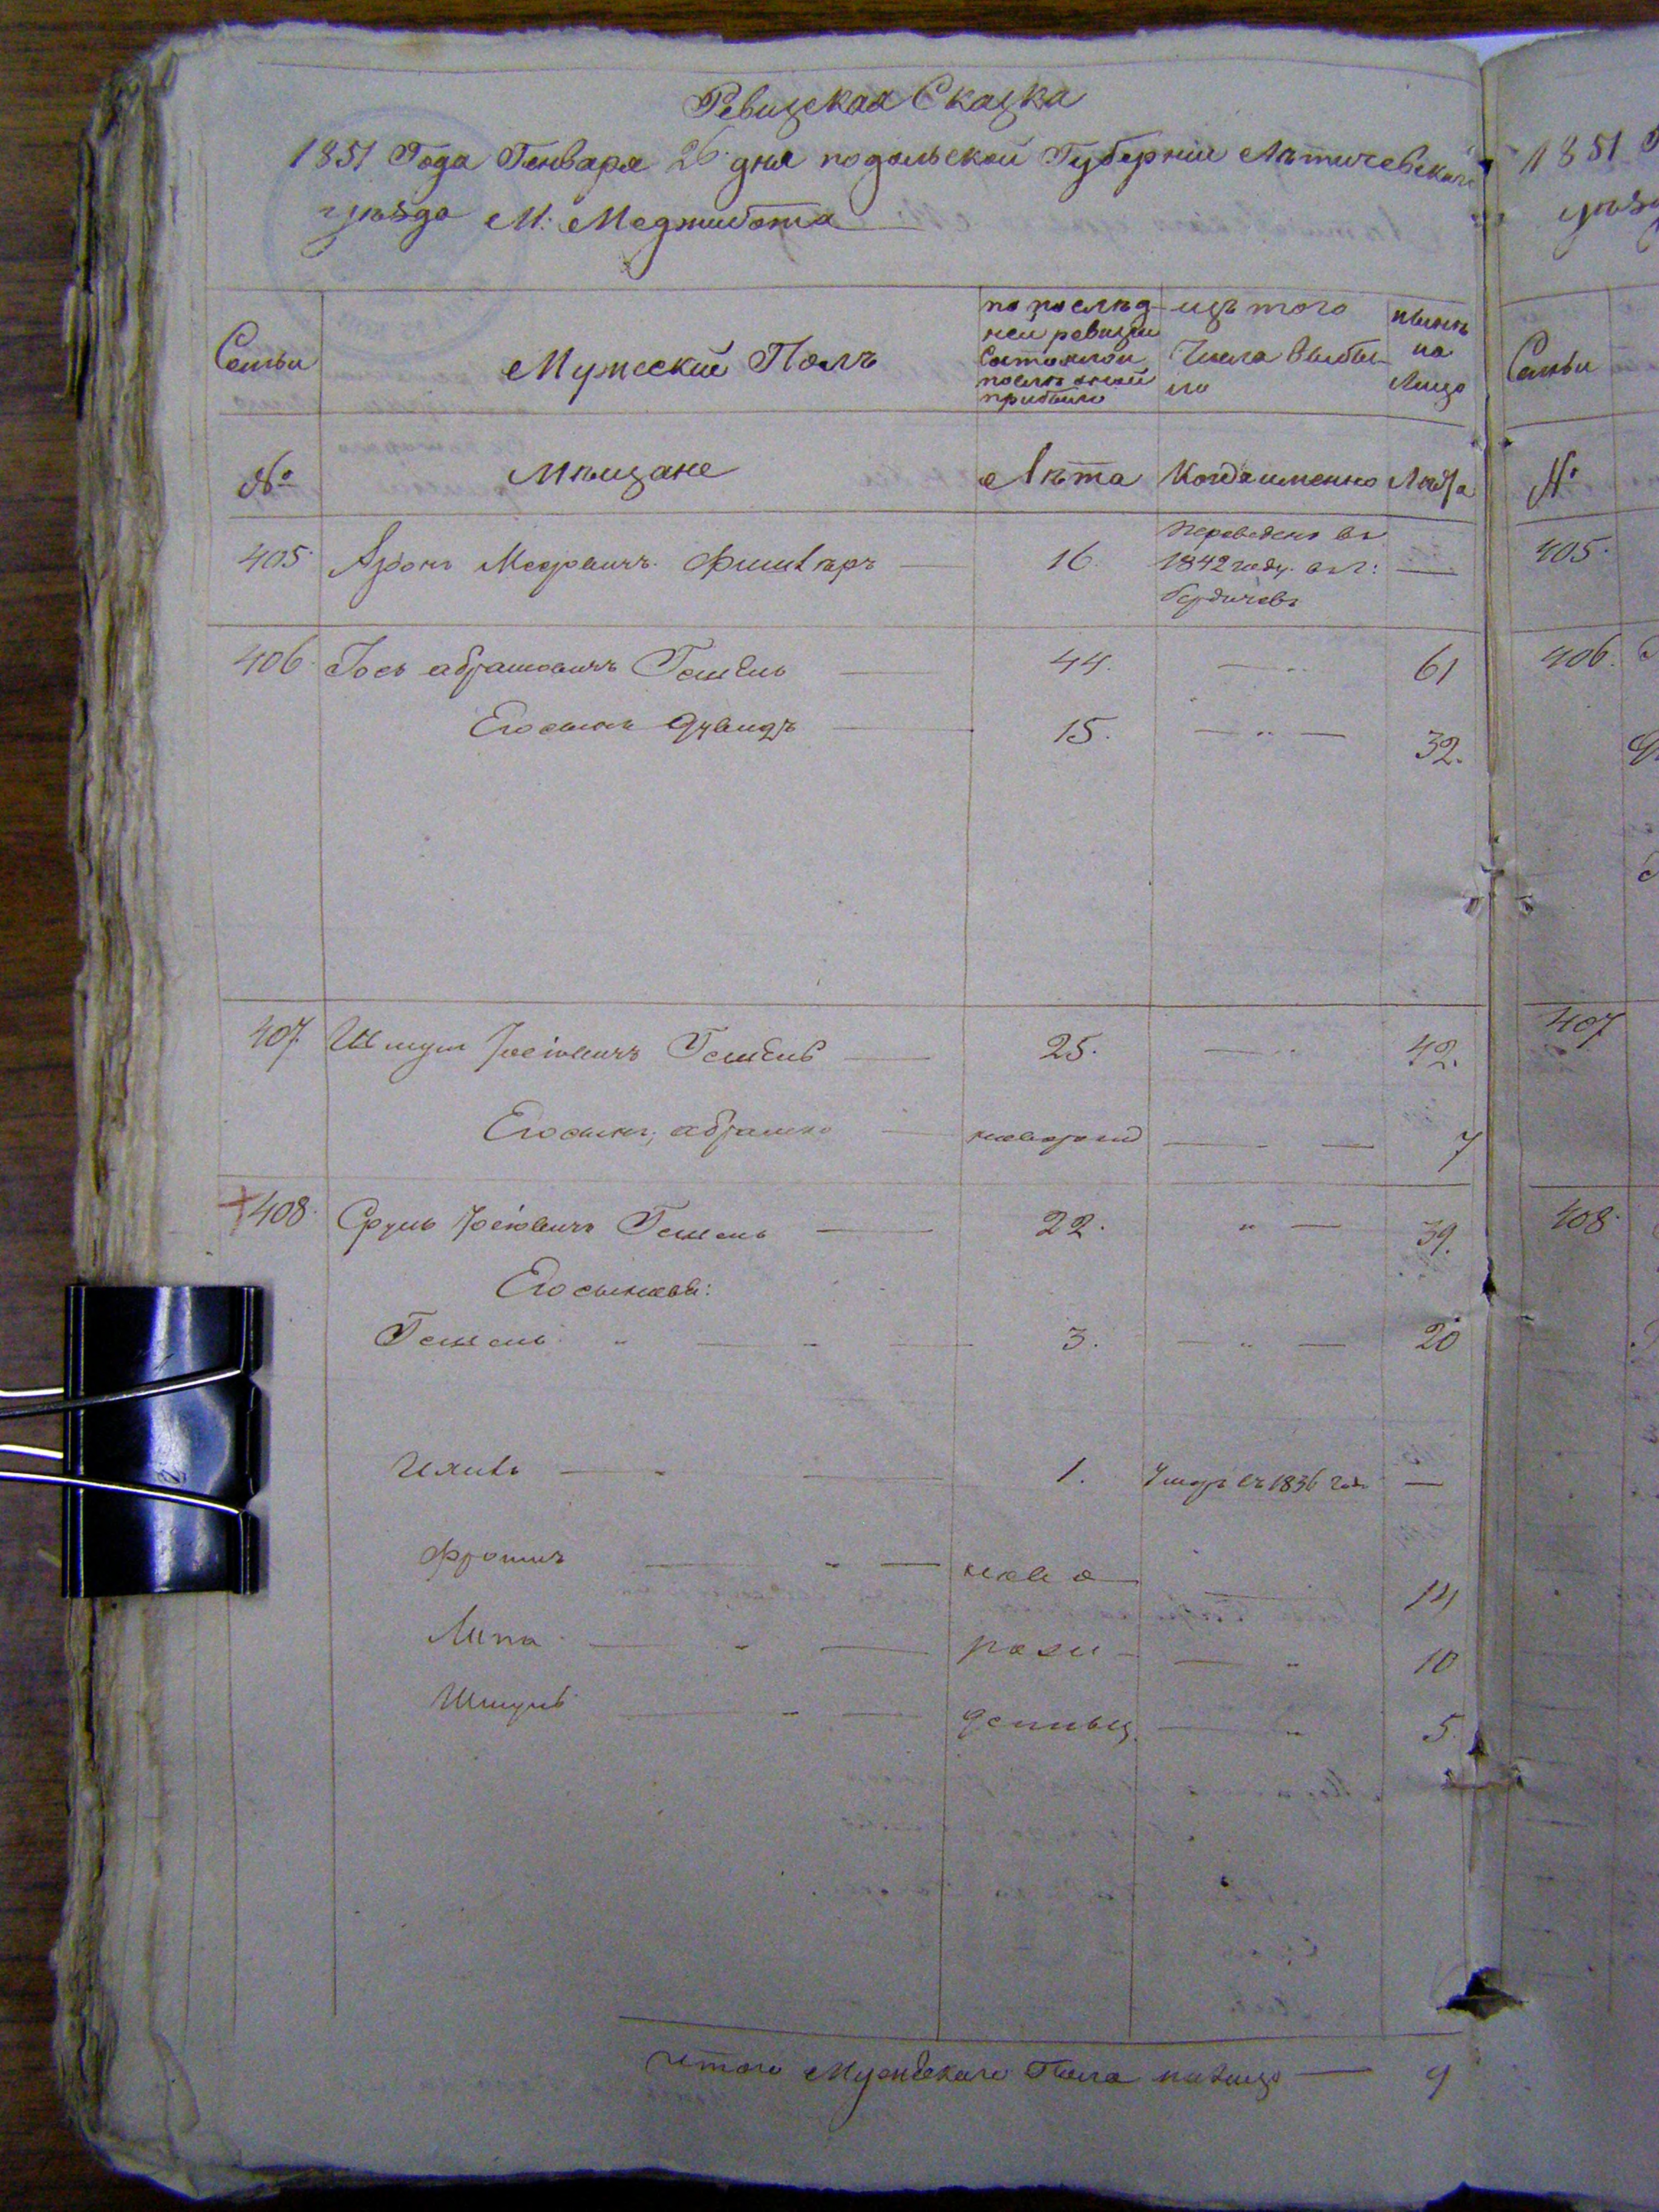 Ревизская Сказка
1851 Года Генваря 26 дня подольской Губерніи Лѣтичевскаго
уѣзда М: Меджибожа
Семьи
Мужескій Полъ
по послѣд-
ней ревизіи
состояло и
послѣ оной
прибыло
изъ того
Числа выбы-
ло
нынѣ
на
Лицо
№
Мѣщане
Лѣта
Когда именно
Лѣта
405
Аронъ Мееровичъ Фишлеръ
16.
переведенъ въ
1842 году въ г:
Бердичевъ
406
Іось Абрамовичъ Гешель
44.
61
Его сынъ Дувидъ
15.
32.
407
Шмулъ Іосіовичъ Гешель
25.
42.
Его сынъ, абрамко
новорожд
7
408
Сруль Іосіовичъ Гешель
22.
39.
Его сыновья:
Гешель
3.
20
Ицикъ
1.
Умеръ въ 1836 год
Фроимъ
ново
14
Липа
рожи-
10
Шмуль
денныи.
5
итого Мужескаго Пола на лицо
9
1851
405
406
407
408
Семьи
№